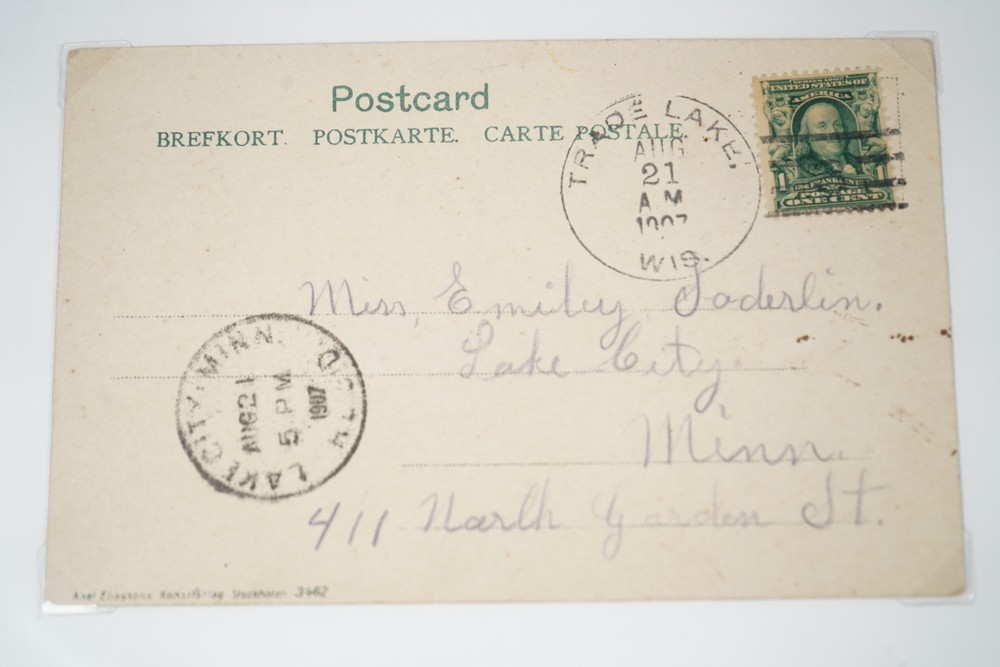 Postcard
BREFKORT. POSTKARTE. CARTE POSTALE.
TRADE LAKE,
AUG
21
A M
1907
WIS.
SERIES 1902
UNITED STATES OF
AMERICA
1 FRANKLIN 1
POSTAGE
ONE CENT
Miss, Emiley Soderlin.
Lake City.
Minn.
411 North Garden St.
LAKE CITY, MINN.
AUG 21
5 PM
1907
REC'D.
Axel Eliassons Konstförlag Stockholm 3462